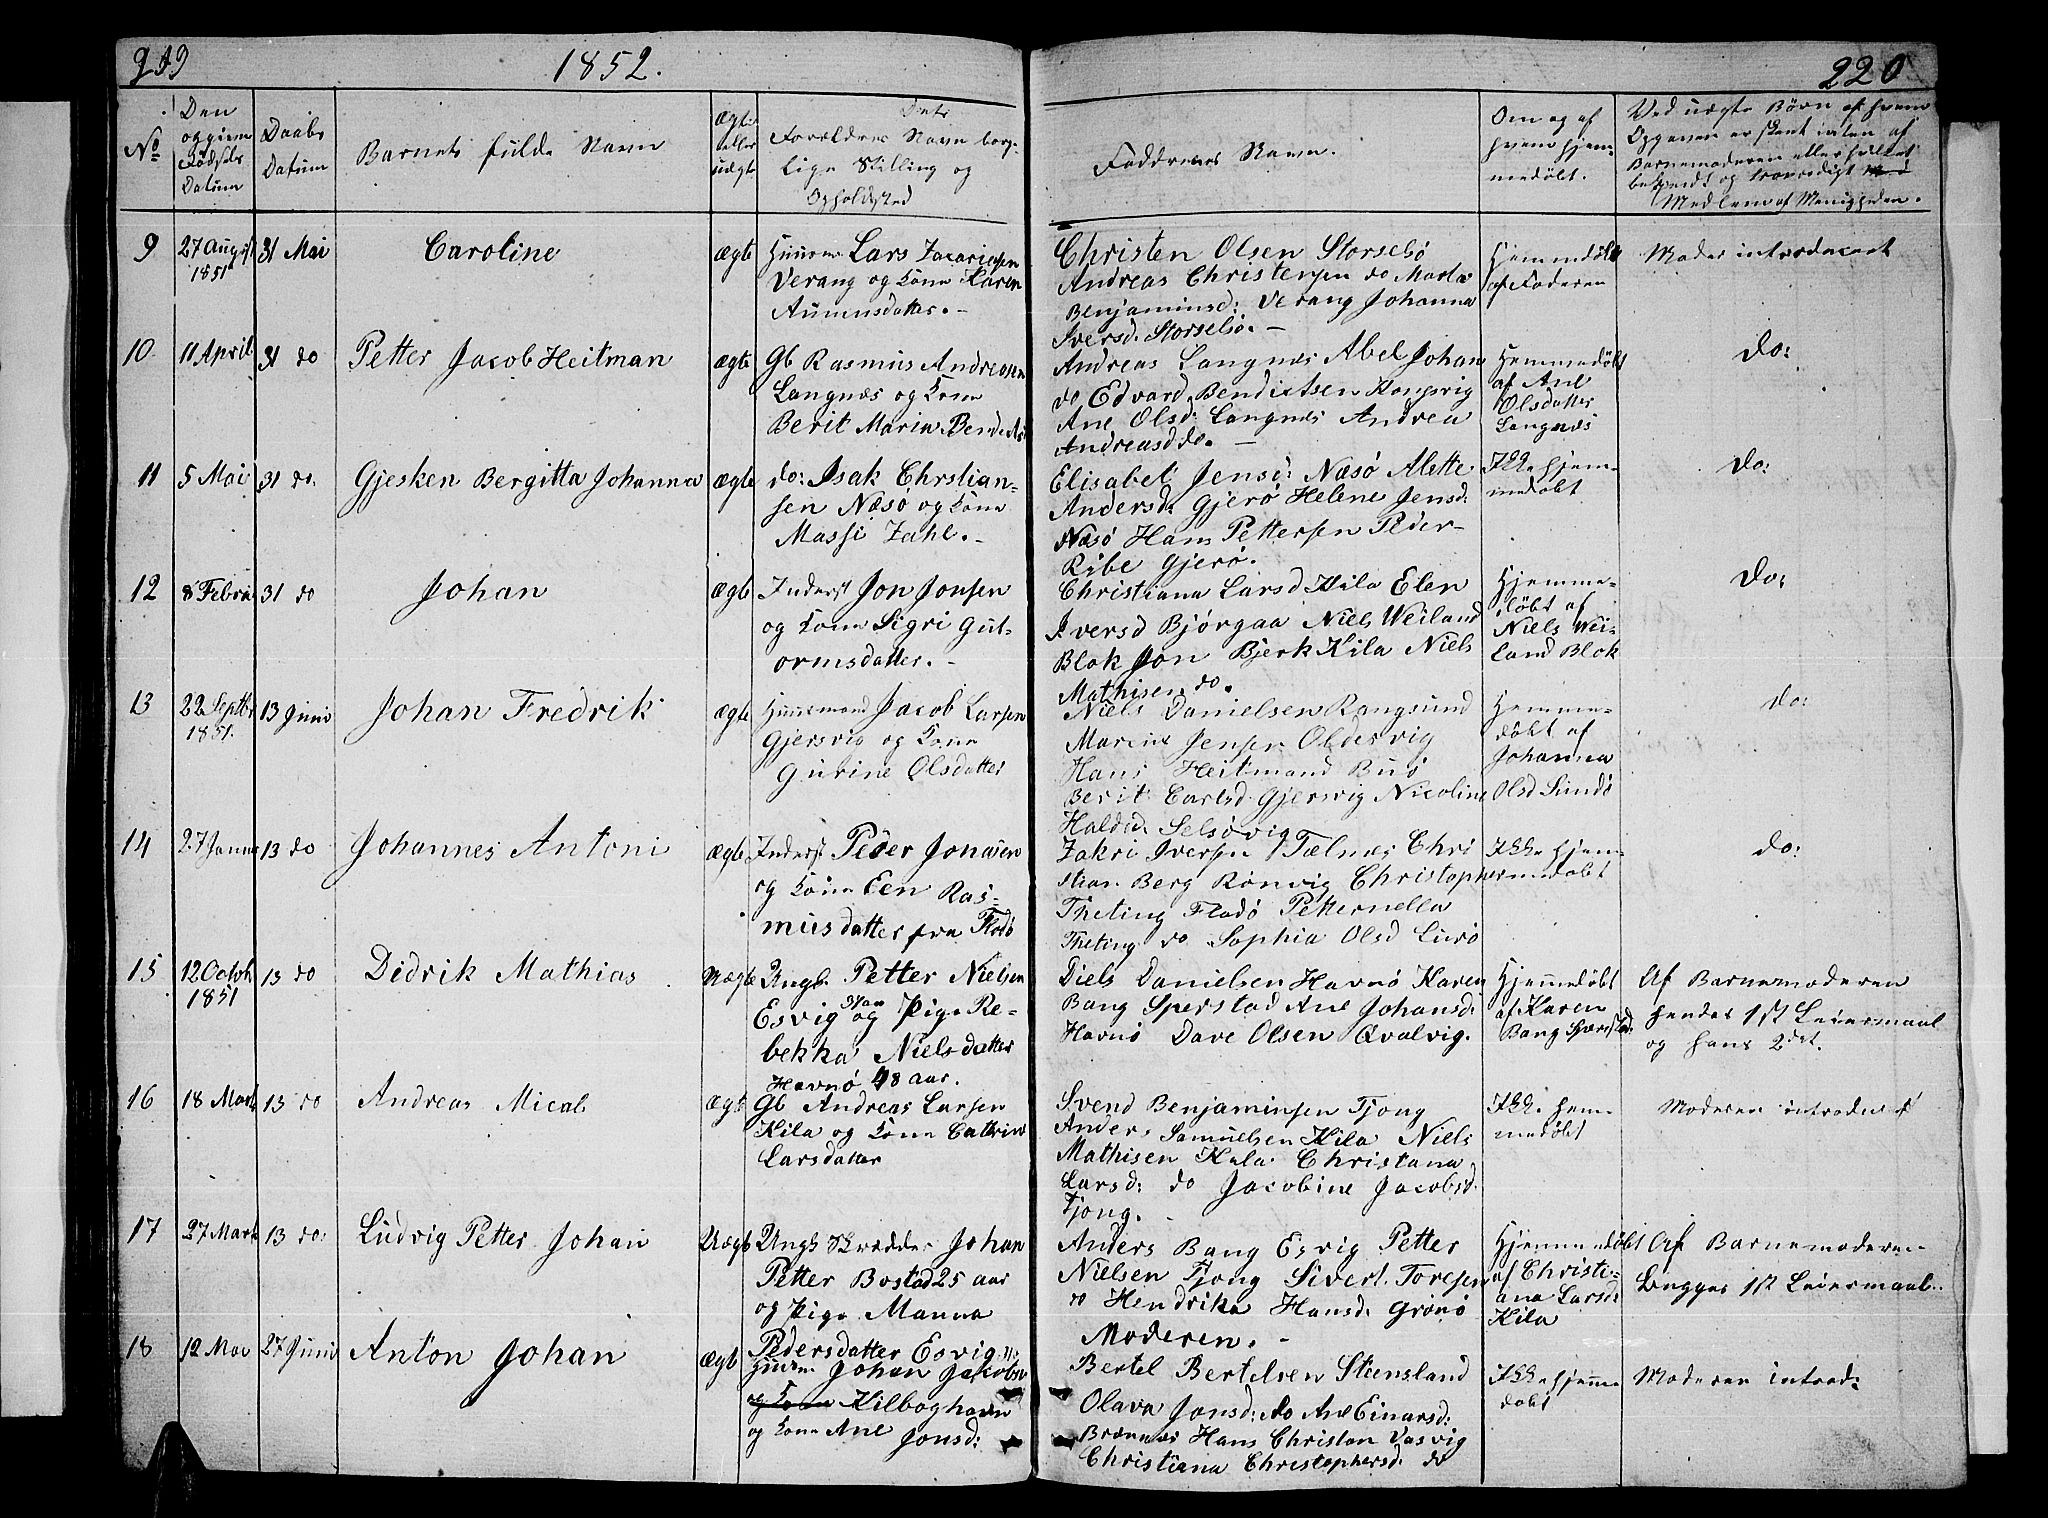 219
1852.
220
No
Den
opgivne
Fødsels
Datum
Daabs
Datum
Barnets fulde Navn
Ægte
eller
uægte
Dets
Forældres Navn borg-
lige Stilling og
Opholdsted
Faddernes Navn.
Om og af
hvem hjem-
medøbt.
Ved uægte Børn af hvem
Opgaven er skeet enten af
Barnemoderen eller hvilket
bekjendt og troværdigt
Medlem af Menigheden.
9
27 August
1851
31 Mai
Caroline
ægte
Huusm Lars Zacariasen
Verang og Kone Karen
Amensdatter.-
Christen Olsen Storselsø
Andreas Christensen do Marta
Benjaminsd: Verang Johanna
Iversd. Storselsø.-
Hjemmedøbt
af Faderen
Moder introduceret
10
11 April
31 do
Petter Jacob Heitman
ægte
Gb Rasmus Andreasen
Langnæs og Kone
Berit Maria Bendiks
Andreas Langnæs Abel Johan
do Edvard Bendiktsen Kongsvig
Ane Olsd: Langnæs Andrea
Andreasd do. -
Hjemmedøbt
af Ane
Olsdatter
Langnæs
do:
11
5 Mai
31 do.
Gjesken Bergitta Johanna
ægte
do: Isak Chrstian-
sen Næsø og Kone
Massi Zahl.-
Elisabet Jensd: Næsø Alette
Andersd: Gjerø Helene Jensd:
Næsø Hans Pettersen Peder
Ribe Gjerø.
Ikke hjem-
medøbt
do:
12
8 Febru
31 do
Johan
ægte
Inderst Jon Jonsen
og Kone Sigri Gut-
ormsdatter.-
Christiana Larsd Kila Elen
Iversd Bjørgaa Niels Weiland
Blok Jon Bjerk Kila Niels
Mathisen do.
Hjemme-
døbt af
Niels Wei-
land Blok
do:
13
22 Septbr
1851.
13 Juni
Johan Fredrik
ægte
Huusmand Jacob Larsen
Gjersvig og Kone
Gurine Olsdatter
Niels Danielsen Rangsund
Marius Jensen Oldervig
Hans Heitmand Buø
Berit Carlsd Gjersvig Nicoline
Haldsd. Selsøvig
Hjemme-
døbt af
Johanna
Olsd Sundø
do:
14
27 Janua
13 do
Johannes Antoni
ægte
Inderst Peder Jonasen
og Kone Een Ras-
musdatter fra Flodø
Zakri Iversen Tælnæs Chri
stian Berg Rønvig Christopher
Theting Flodø Petternella
Theting do Sophia Olsd Lurø
Ikke hjem-
medøbt
do:
15
12 Octob
1851
13 do
Didrik Mathias
Uægte
Ungk. Petter Nielsen
Esvig 31 aar og Pige Re-
bekka Nielsdatter
Havnø 48 aar.
Diels Danielsen Havnø Karen
Bang Sperstad Ane Johansd:
Havnø Dave Olsen Qvalvig.
Hjemmedøbt
af Karen
Bang Sperstad
Af Barnemoderen
hendes 1st Leiermaal
og hans 2det.
16
18 Marts
13 do
Andreas Mical
Ægte
Gb Andreas Larsen
Kila og Kone Cathrine
Larsdatter
Svend Benjaminsen Tjong
Anders Samuelsen Kila Niels
Mathisen Kila Christana
Larsd: do Jacobine Jacobsd.
Tjong.
Ikke hjem-
medøbt
Moderen introduc
17
27 Marts
13 do:
Ludvig Petter Johan
Uægte
Ungk Skrædder Johan
Petter Bostad 25 aar
og Pige Manna
Pedersdatter Esvig
Anders Bang Esvig Petter
Nielsen Tjong Sivert Toresen
do Hendrika Hansd: Grønø
Moderen.-
Hjemmedøbt
af Christi-
ana Larsd:
Kila
Af Barnemoderen
Begges 1st Leiermaal.
18
12 Mai
27 Juni
Anton Johan
ægte
Huusm Johan Jakobsen
og Kone Kilboghavn
og Kone Ane
Jonsd:
Bertel Bertelsen Steensland
Olava Jonsd: do Ane Einarsd:
Brænnæs Hans Christan Vasvig
Christiana Christophersd: do
Ikke hjemme
døbt
Moderen introd: